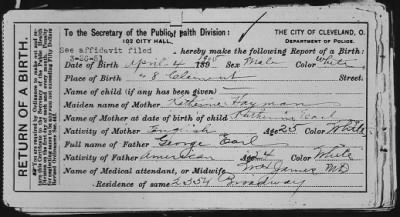 To the Secretary of the Public Health Division:
103 CITY HALL.
THE CITY OF CLEVELAND, O.
DEPARTMENT OF POLICE.
See affidavit filed
3-25-51
hereby make the following Report of a Birth:
Date of Birth April 4 1900 189 Sex Male Color White
Place of Birth 8 Clement Street.
Name of child (if any has been given)
Maiden name of Mother Katherine Hayman
Name of Mother at date of birth of child Katherine Earl
Nativity of Mother English Age 23 Color White
Full name of Father George Earl
Nativity of Father American Age 24 Color White
Name of Medical attendant, or Midwife James MD
Residence of same 2354 Broadway
RETURN OF A BIRTH.